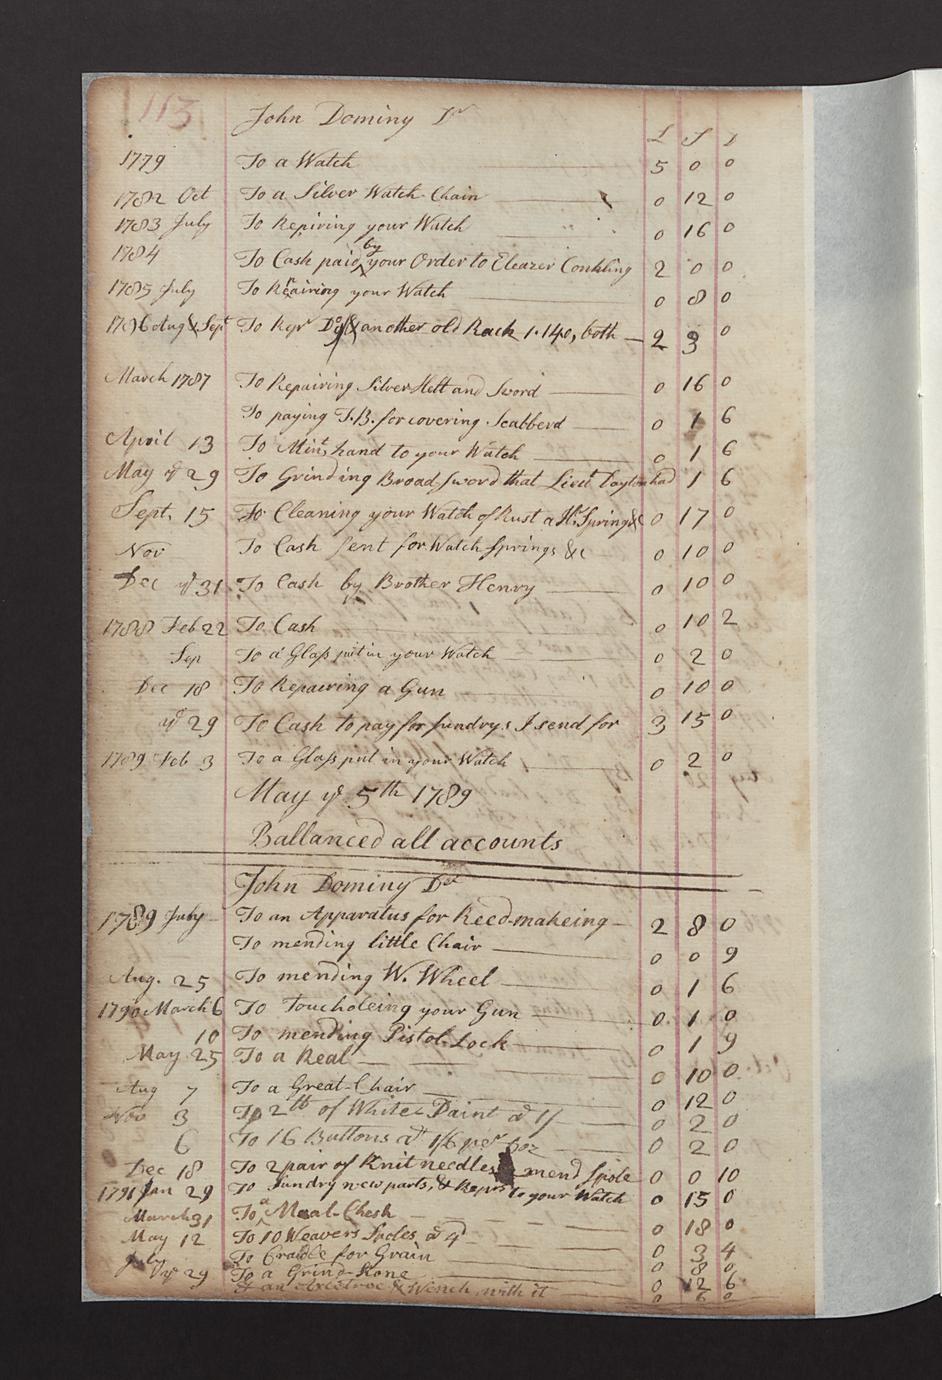 113 John Dominy Dr
£ S D
1779 To a Watch 5 0 0
1782 Oct To a Silver Watch Chain 0 12 0
1783 July To Repiring your Watch 0 16 0
1784 To Cash paid by your Order to Eleazer Conkling 2 0 0
1785 July To Repairing your Watch 0 8 0
1786 Aug & Sept To Repr Do & another old Rack 1.14.0, both 2 3 0
March 1787 To Repairing Silver Hilt and Sword 0 16 0
To paying T.B. for covering Scabberd 0 1 6
April 13 To Mint hand to your Watch 0 1 6
May ye 29 To Grinding Broad Sword that Lieut Tayler had 1 6
Sept. 15 To Cleaning your Watch of Rust a Mn Spring &c 0 17 0
Nov To Cash sent for Watch Springs &c 0 10 0
Dec ye 31 To Cash by Brother Henry 0 10 0
1788 Feb 22 To Cash 0 10 2
Sep To a Glass put in your Watch 0 2 0
Dec 18 To Repairing a Gun 0 10 0
ye 29 To Cash to pay for sundrys I send for 3 15 0
1789 Feb 3 To a Glass put in your Watch 0 2 0
May ye 5th 1789
Ballanced all accounts
John Dominy Dr
1789 July To an Apparatus for Reed-makeing 2 8 0
To mending little Chair 0 0 9
Aug. 25 To mending W. Wheel 0 1 6
1790 March 6 To Toucholeing your Gun 0 1 0
10 To mending Pistol-Lock 0 1 9
May 25 To a Real 0 10 0
Aug 7 To a Great-Chair 0 12 0
Nov 3 To 2 lb of White Paint at 1/ 0 2 0
6 To 16 Buttons at 1/6 per Doz 0 2 0
Dec 18 To 2 pair of Knit needles mend Spole 0 0 10
1791 Jan 29 To Sundry new parts, & Reprs to your Watch 0 15 0
March 31 To a Meal-Chest 0 18 0
May 12 To 10 Weavers Spoles at 4d 0 3 4
July To Cradle for Grain 0 8 0
ye 29 To a Grind-Stone 0 12 6
& Wench with it 0 6 0